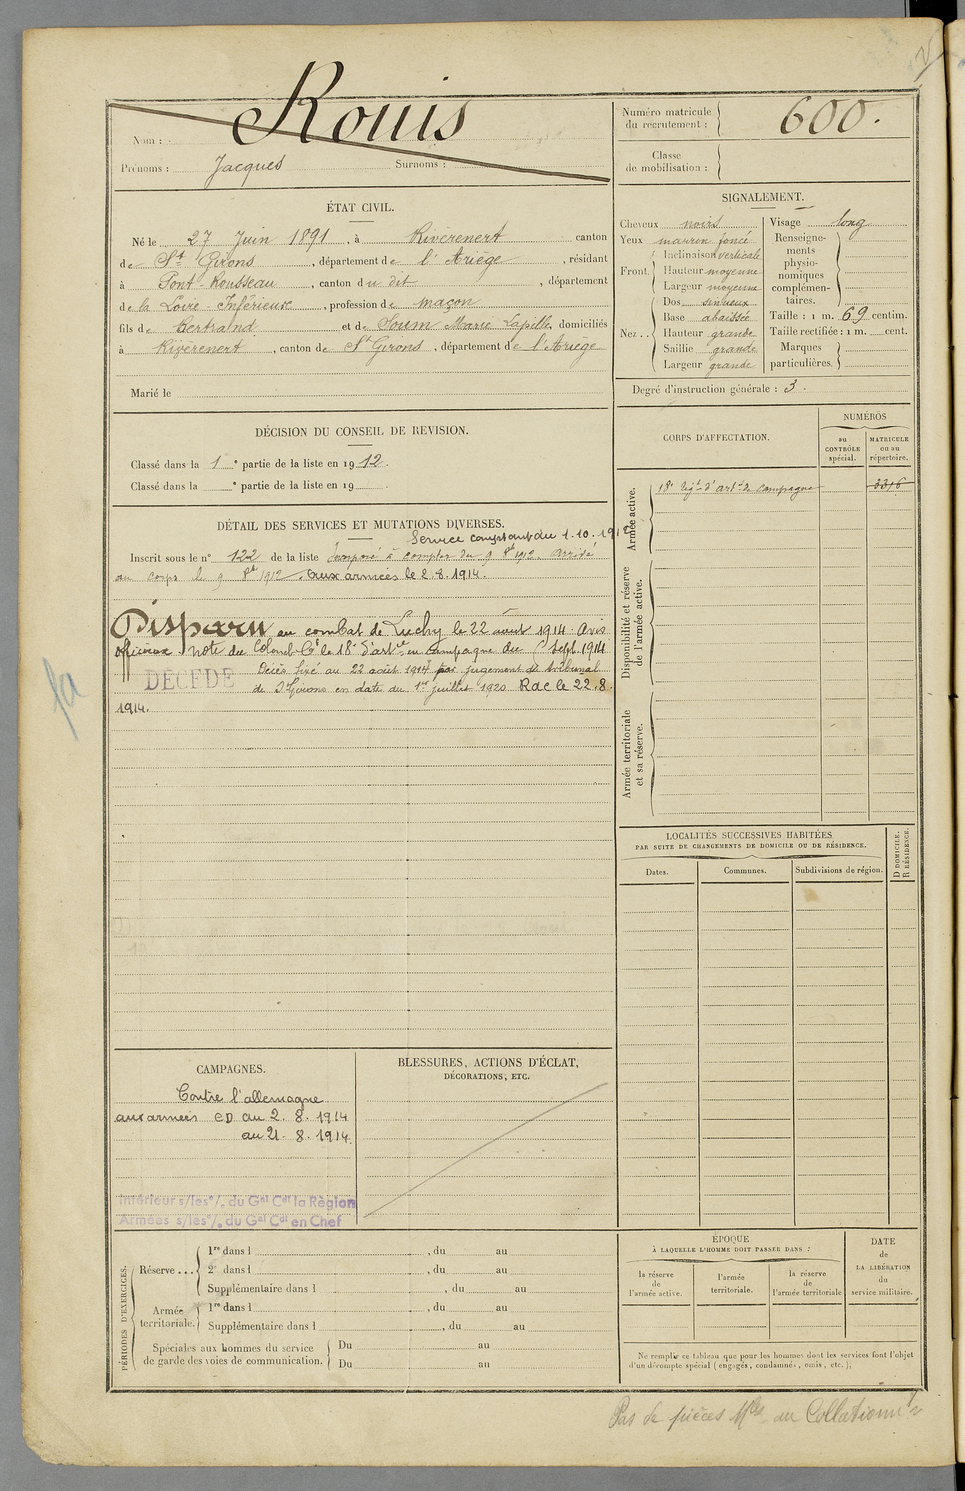 Nom : Rouis
Prénoms : Jacques Surnoms :
Numéro matricule du recrutement : 600.
Classe de mobilisation :
ÉTAT CIVIL.
Né le 27 Juin 1891, à Rivèrenert canton
de St Girons, département de l'Ariège, résidant
à Pont-Rousseau, canton du dit, département
de la Loire-Inférieure, profession de maçon
fils de Bertrand et de Soum Marie Lapille, domiciliés
à Rivèrenert, canton de St Girons, département de l'Ariège
Marié le
SIGNALEMENT.
Cheveux noirs
Yeux marron foncé
Front. Inclinaison verticale
Hauteur moyenne
Largeur moyenne
Nez.. Dos sinueux
Base abaissée
Hauteur grande
Saillie grande
Largeur grande
Visage long
Renseigne-
ments
physio-
nomiques
complémen-
taires.
Taille : 1 m. 69 centim.
Taille rectifiée : 1 m. cent.
Marques
particulières.
Degré d'instruction générale : 3.
DÉCISION DU CONSEIL DE REVISION.
Classé dans la 1e partie de la liste en 1912.
Classé dans la e partie de la liste en 19
DÉTAIL DES SERVICES ET MUTATIONS DIVERSES.
Service comptant du 1.10.1912
Inscrit sous le n° 122 de la liste Incorporé à compter du 9 8bre 1912. Arrivé
au corps le 9 8bre 1912. Aux armées le 2.8.1914.
Disparu au combat de Luchy le 22 août 1914. Avis
officieux note du Colonel Ct le 18e d'artie en Campagne du Sept. 1914
DÉCÉDÉ Décès fixé au 22 août 1914 par jugement du tribunal
de St Girons en date du 1er juillet 1920 Rac le 22.8.
1914.
CORPS D'AFFECTATION.
NUMÉROS
au CONTRÔLE spécial.
MATRICULE ou au répertoire.
Armée active.
18e Régt d'artie de Campagne 3316
Disponibilité et réserve
de l'armée active.
Armée territoriale
et sa réserve.
LOCALITÉS SUCCESSIVES HABITÉES
PAR SUITE DE CHANGEMENTS DE DOMICILE OU DE RÉSIDENCE.
Dates.
Communes.
Subdivisions de région.
D DOMICILE.
R RÉSIDENCE.
CAMPAGNES.
Contre l'allemagne
aux armées CD du 2.8.1914
au 21.8.1914.
Intérieur s/les°/. du Gal Cdt la Région
Armées s/les°/. du Gal Cdt en Chef
BLESSURES, ACTIONS D'ÉCLAT,
DÉCORATIONS, ETC.
PÉRIODES D'EXERCICES.
Réserve... 1re dans l , du au
2e dans l , du au
Supplémentaire dans l , du au
Armée
territoriale. 1re dans l , du au
Supplémentaire dans l , du au
Spéciales aux hommes du service
de garde des voies de communication. Du au
Du au
ÉPOQUE
À LAQUELLE L'HOMME DOIT PASSER DANS :
la réserve de l'armée active.
l'armée territoriale.
la réserve de l'armée territoriale
DATE
de
LA LIBÉRATION
du
service militaire.
Ne remplir ce tableau que pour les hommes dont les services font l'objet
d'un décompte spécial (engagés, condamnés, omis, etc.).
Pas de pièces Mles au Collationnt